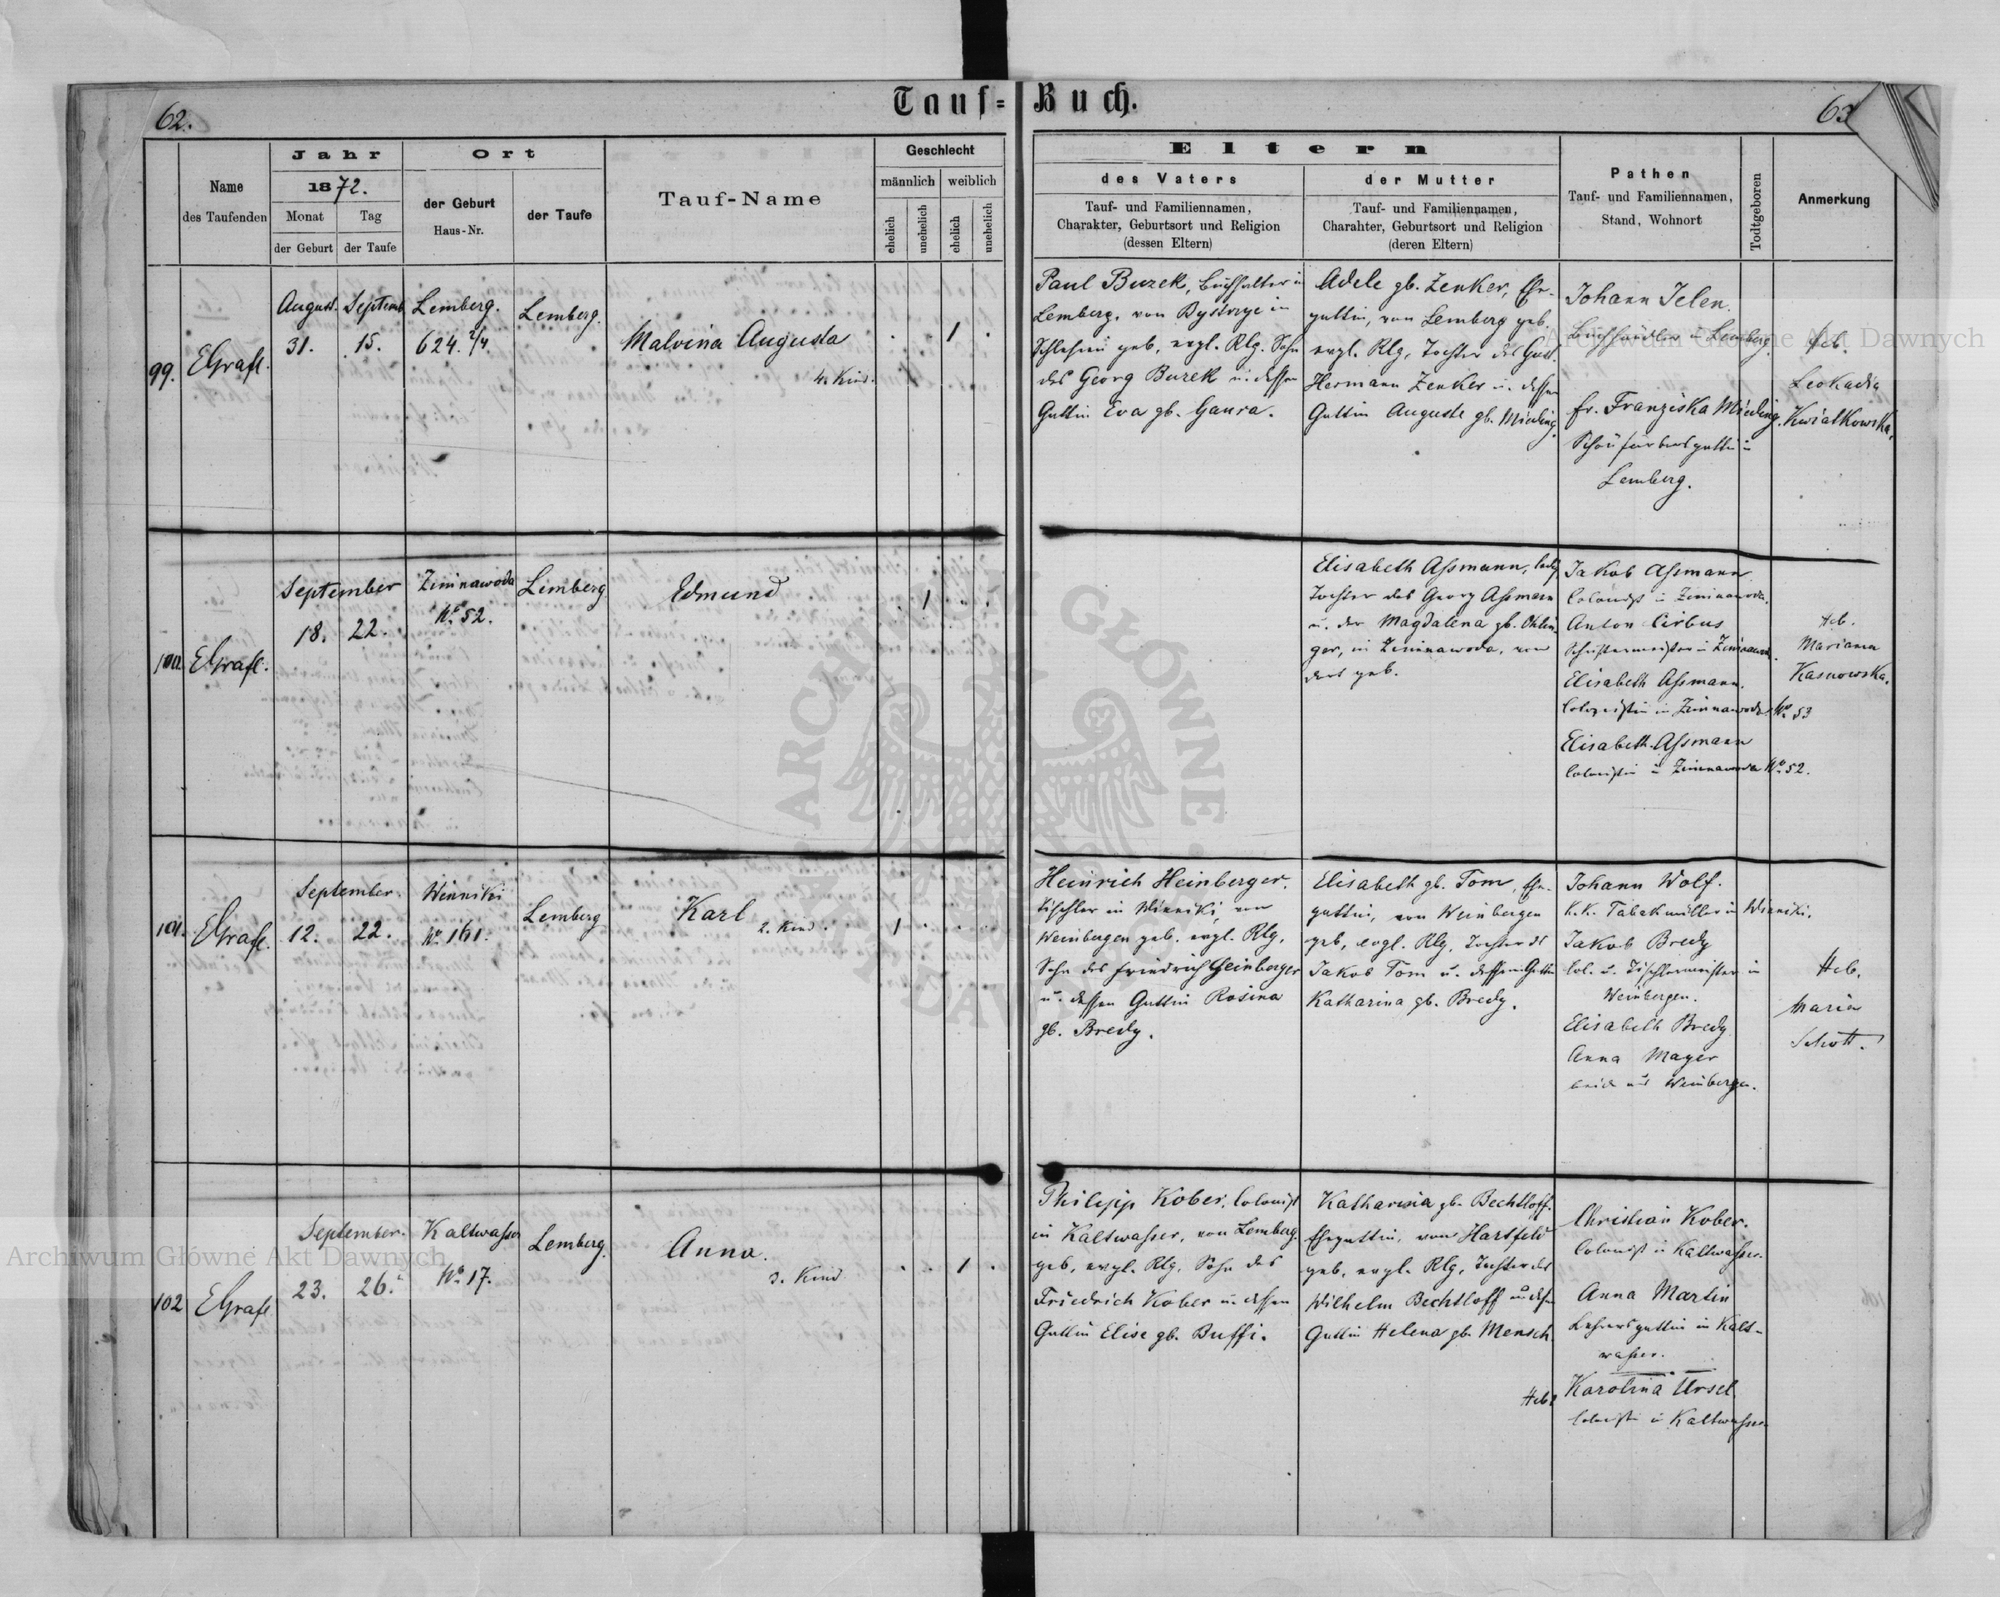 62.
Tauf-Buch.
63
Name
des Taufenden
Jahr
1872.
Monat
Tag
der Geburt
der Taufe
Ort
der Geburt
Haus-Nr.
der Taufe
Tauf-Name
Geschlecht
männlich
weiblich
ehelich
unehelich
ehelich
unehelich
Eltern
des Vaters
Tauf- und Familiennamen,
Charakter, Geburtsort und Religion
(dessen Eltern)
der Mutter
Tauf- und Familiennamen,
Charahter, Geburtsort und Religion
(deren Eltern)
Pathen
Tauf- und Familiennamen,
Stand, Wohnort
Todtgeboren
Anmerkung
99.
EGrafl.
August.
31.
Septemb.
15.
Lemberg.
624. 2/4
Lemberg.
Malvina Augusta
4. Kind.
1
Paul Buzek, Buchhalter in
Lemberg, von Bystrzyc in
Schlesien geb, evgl. Rlg. Sohn
des Georg Buzek u. dessen
Gattin Eva gb. Gaura.
Adele gb. Zenker, Ehe-
gattin, von Lemberg geb.
evgl. Rlg, Tochter des Gust.
Hermann Zenker u. dessen
Gattin Auguste gb. Mieding.
Johann Jelen.
Buchhändler in Lemberg.
fr. Franziska Mieding.
Schönfärbersgattin in
Lemberg.
Heb.
Leokadia
Kwiatkowska.
100.
EGrafl.
September
18.
22.
Zimnawoda
No. 52.
Lemberg
Edmund
1
Elisabeth Aßmann, ledig
Tochter des Georg Aßmann
u. der Magdalena gb. Ohlin-
ger, in Zimnawoda, von
dort geb.
Jakob Aßmann
Colonist in Zimnawoda.
Anton Cirbus
Schustermeister in Zimnawoda.
Elisabeth Aßmann.
Colonistin in Zimnawoda No. 53
Elisabeth Aßmann
Colonistin in Zimnawoda No. 52.
Heb.
Mariana
Kasnowska.
101.
EGrafl.
September.
12.
22.
Winniki
No. 161.
Lemberg
Karl
2. Kind.
1
Heinrich Heinberger.
Tischler in Winniki, von
Weinbergen geb. evgl. Rlg.
Sohn des Friedrich Heinberger
u. dessen Gattin Rosina
gb. Bredy.
Elisabeth gb. Tom, Ehe-
gattin, von Weinbergen
geb, evgl. Rlg, Tochter des
Jakob Tom u. dessen Gattin
Katharina gb. Bredy.
Johann Wolf.
K.K. Tabakmüller in Winniki.
Jakob Bredy
Col. u. Tischlermeister in
Weinbergen.
Elisabeth Bredy
Anna Mayer
beide aus Weinbergen.
Heb.
Maria
Schott.
102
EGrafl
September.
23.
26.
Kaltwasser
No. 17.
Lemberg.
Anna.
3. Kind
1
Philipp Kober, Colonist
in Kaltwasser, von Lemberg
geb, evgl. Rlg, Sohn des
Friedrich Kober u. dessen
Gattin Elise gb. Buffi.
Katharina gb. Bechtloff.
Ehegattin, von Hartfeld
geb, evgl. Rlg, Tochter des
Wilhelm Bechtloff und dessen
Gattin Helena gb. Mensch.
Christian Kober.
Colonist in Kaltwasser.
Anna Martin
Lehrersgattin in Kalt-
wasser.
Heb. Karolina Ursel
Colonistin in Kaltwasser
Archiwum Główne Akt Dawnych
Archiwum Główne Akt Dawnych
ARCHIWUM GŁÓWNE AKT DAWNYCH